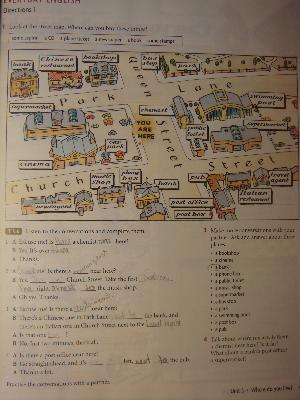 EVERYDAY ENGLISH
Directions 1
1 Look at the street map. Where can you buy these things?
some aspirin a CD a plane ticket a newspaper a book some stamps
bank
Chinese restaurant
bookshop
bus stop
park
Park
Lane
Queen
Street
swimming pool
supermarket
chemist
YOU ARE HERE
public toilet
supermarket
cinema
car park
Street
Church
music shop
phone box
bank
pub
travel agent
Italian restaurant
newsagent
post office
post box
Listen to the conversations and complete them.
A Excuse me! Is a chemist here?
B Yes. It's over
A Thanks.
A me! Is there a near here?
B Yes, Church Street. Take the first
the music shop.
A Oh yes. Thanks.
A Excuse me! Is there a near here?
B There's a Chinese one in Park Lane the bank, and
there's an Italian one in Church Street next to the
A Is that one
B No. Just two minutes, that's all.
A Is there a post office near here?
B Go straight ahead, and it's left, the pub.
A Thanks a lot.
Practise the conversations with a partner.
3 Make more conversations with your
partner. Ask and answer about these
places:
a bookshop
a cinema
a bank
a phone box
a public toilet
a music shop
a supermarket
a bus stop
a park
a swimming pool
a post box
a pub
4 Talk about where you are. Is there
a chemist near here? Is it far?
What about a bank/a post office/
a supermarket?
Unit 5 • Where do you live?